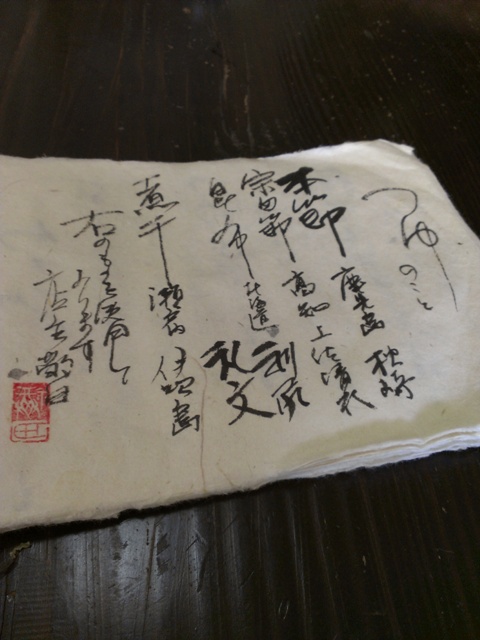 つゆのこと
本節 鹿児島 枕崎
宗田節 高知 土佐清水
昆布 北海道 利尻
礼文
煮干 瀬戸 伊吹島
右のものを使用して
おります
店主敬白